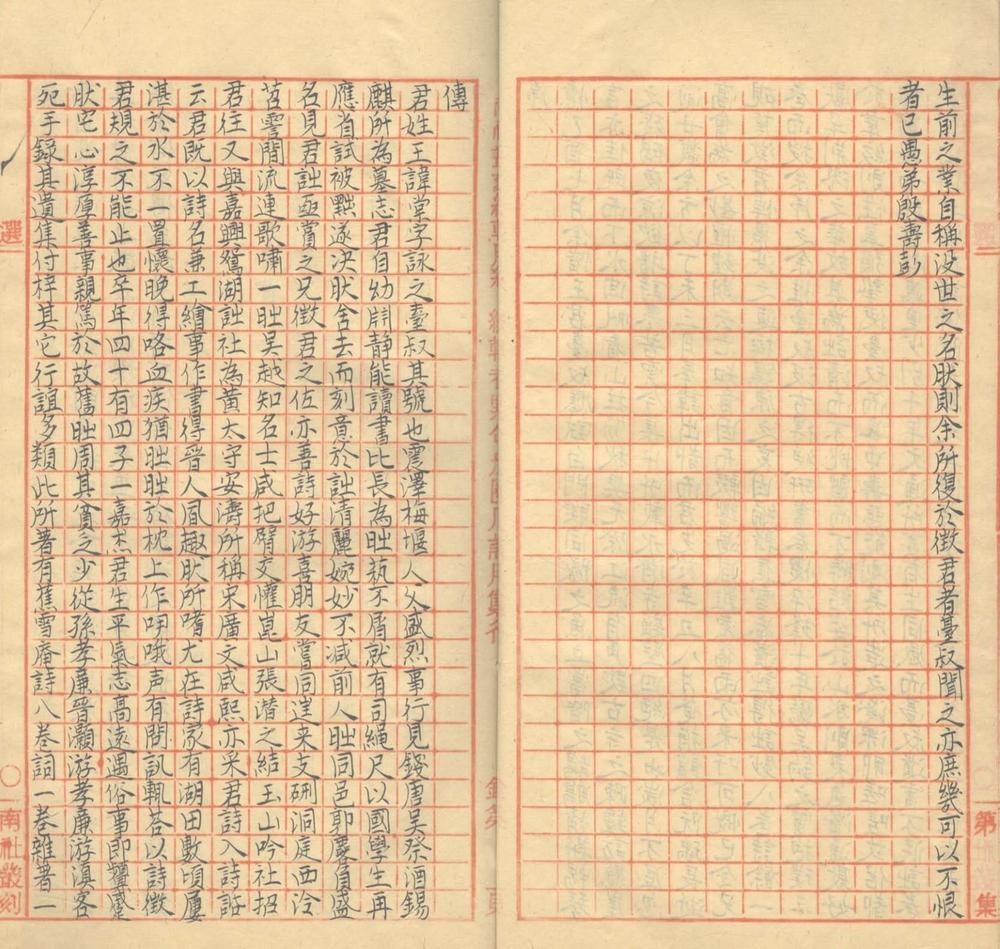 生前之業自稱没世之名肰則余所復於徵君者臺叔聞之亦庶幾可以不恨
者已愚弟殷壽彭
傳
君姓王諱棠字詠之臺叔其號也震澤梅堰人父盛烈事行見錢唐吴祭酒錫
麒所為墓志君自幼閒静能讀書比長為旹藝不屑就有司繩尺以國學生再
應省試被黜遂决肰舍去而刻意於詩清麗婉妙不减前人旹同邑郭麐負盛
名見君詩亟賞之兄徵君之佐亦善詩好游喜朋友嘗同逹来支硎洞庭西泠
苕霅間流連歌嘯一旹吴越知名士咸把臂交懽崑山張潛之結玉山吟社招
君往又與嘉興鴛湖詩社為黄太守安濤所稱宋廣文咸熙亦采君詩入詩話
云君既以詩名兼工繪事作書得晉人風趣肰所嗜尤在詩家有湖田數頃屢
湛於水不一置懷晚得咯血疾猶旹旹於枕上作呻哦声有問訊輒荅以詩徵
君規之不能止也卒年四十有四子一嘉杰君生平氣志高遠遇俗事即顰蹙
肰宅心淳厚善事親篤於故舊旹周其貧乏少從孫孝廉晉灝游孝廉游滇客
死手録其遺集付梓其它行誼多類此所著有蕉雪庵詩八卷詞一卷雜著一
選
南社叢刻
第
集